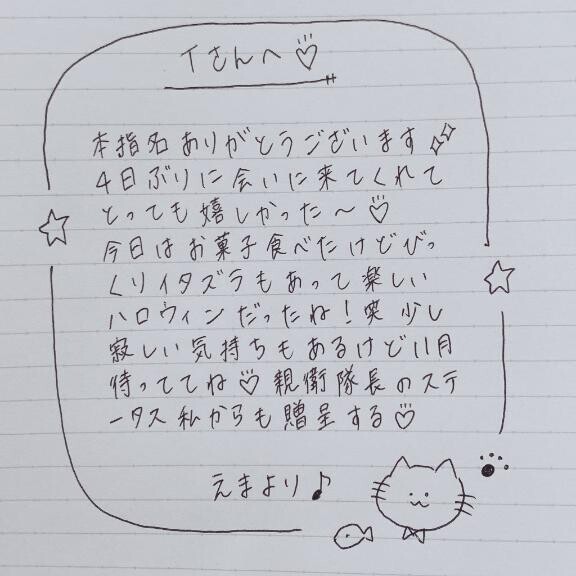 Tさんへ♡
本指名ありがとうございます
4日ぶりに会いに来てくれて
とっても嬉しかった〜♡
今日はお菓子食べたけどびっ
くりイタズラもあって楽しい
ハロウィンだったね！笑 少し
寂しい気持ちもあるけど11月
待っててね♡ 親衛隊長のステ
ータス私からも贈呈する♡
えまより♪